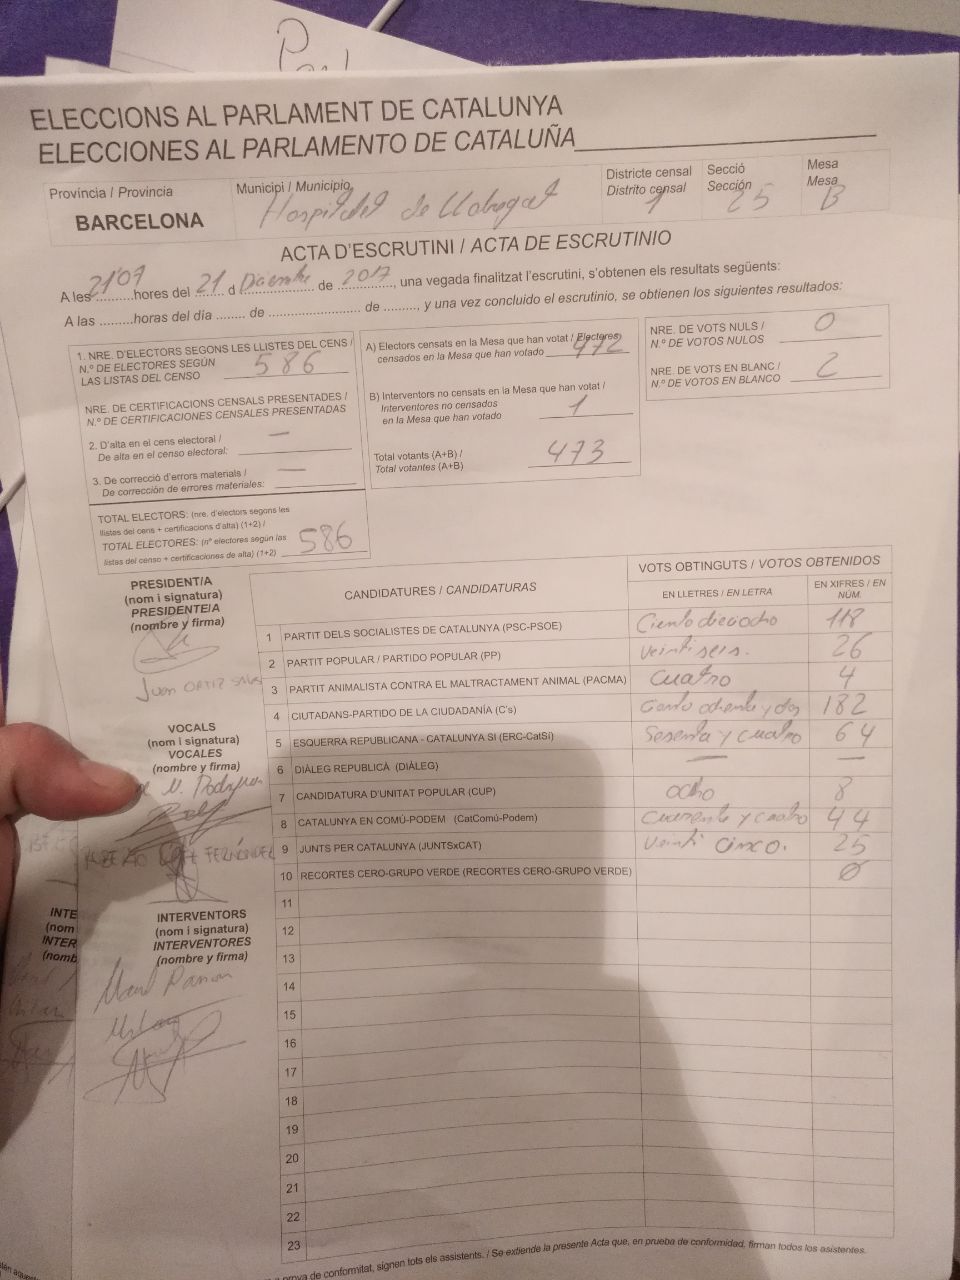 ELECCIONS AL PARLAMENT DE CATALUNYA
ELECCIONES AL PARLAMENTO DE CATALUÑA
Província / Provincia
BARCELONA
Municipi / Municipio
Hospitalet de Llobregat
Districte censal
Distrito censal
1
Secció
Sección
25
Mesa
Mesa
B
ACTA D'ESCRUTINI / ACTA DE ESCRUTINIO
A les 21'07 hores del 21 d Diciembre de 2017, una vegada finalitzat l'escrutini, s'obtenen els resultats següents:
A las .........horas del día ........ de ......................... de ........., y una vez concluido el escrutinio, se obtienen los siguientes resultados:
1. NRE. D'ELECTORS SEGONS LES LLISTES DEL CENS /
N.º DE ELECTORES SEGÚN
LAS LISTAS DEL CENSO 586
NRE. DE CERTIFICACIONS CENSALS PRESENTADES /
N.º DE CERTIFICACIONES CENSALES PRESENTADAS
2. D'alta en el cens electoral /
De alta en el censo electoral: —
3. De correcció d'errors materials /
De corrección de errores materiales: —
TOTAL ELECTORS: (nre. d'electors segons les
llistes del cens + certificacions d'alta) (1+2) /
TOTAL ELECTORES: (nº electores según las
listas del censo + certificaciones de alta) (1+2) 586
A) Electors censats en la Mesa que han votat / Electores
censados en la Mesa que han votado 472
B) Interventors no censats en la Mesa que han votat /
Interventores no censados
en la Mesa que han votado 1
Total votants (A+B) /
Total votantes (A+B) 473
NRE. DE VOTS NULS /
N.º DE VOTOS NULOS 0
NRE. DE VOTS EN BLANC /
N.º DE VOTOS EN BLANCO 2
PRESIDENT/A
(nom i signatura)
PRESIDENTE/A
(nombre y firma)
Juan ORTIZ
VOCALS
(nom i signatura)
VOCALES
(nombre y firma)
FERNÁNDEZ
INTERVENTORS
(nom i signatura)
INTERVENTORES
(nombre y firma)
INTE
(nom
INTER
(nomb
CANDIDATURES / CANDIDATURAS
VOTS OBTINGUTS / VOTOS OBTENIDOS
EN LLETRES / EN LETRA
EN XIFRES / EN NÚM.
1 PARTIT DELS SOCIALISTES DE CATALUNYA (PSC-PSOE) Ciento dieciocho 118
2 PARTIT POPULAR / PARTIDO POPULAR (PP) Veintiseis. 26
3 PARTIT ANIMALISTA CONTRA EL MALTRACTAMENT ANIMAL (PACMA) Cuatro 4
4 CIUTADANS-PARTIDO DE LA CIUDADANÍA (C's) Ciento ochenta y dos 182
5 ESQUERRA REPUBLICANA - CATALUNYA SÍ (ERC-CatSí) Sesenta y cuatro 64
6 DIÀLEG REPUBLICÀ (DIÀLEG) — —
7 CANDIDATURA D'UNITAT POPULAR (CUP) ocho 8
8 CATALUNYA EN COMÚ-PODEM (CatComú-Podem) Cuarenta y cuatro 44
9 JUNTS PER CATALUNYA (JUNTSxCAT) Veinti cinco. 25
10 RECORTES CERO-GRUPO VERDE (RECORTES CERO-GRUPO VERDE) 0
11
12
13
14
15
16
17
18
19
20
21
22
23
prova de conformitat, signen tots els assistents. / Se extiende la presente Acta que, en prueba de conformidad, firman todos los asistentes.